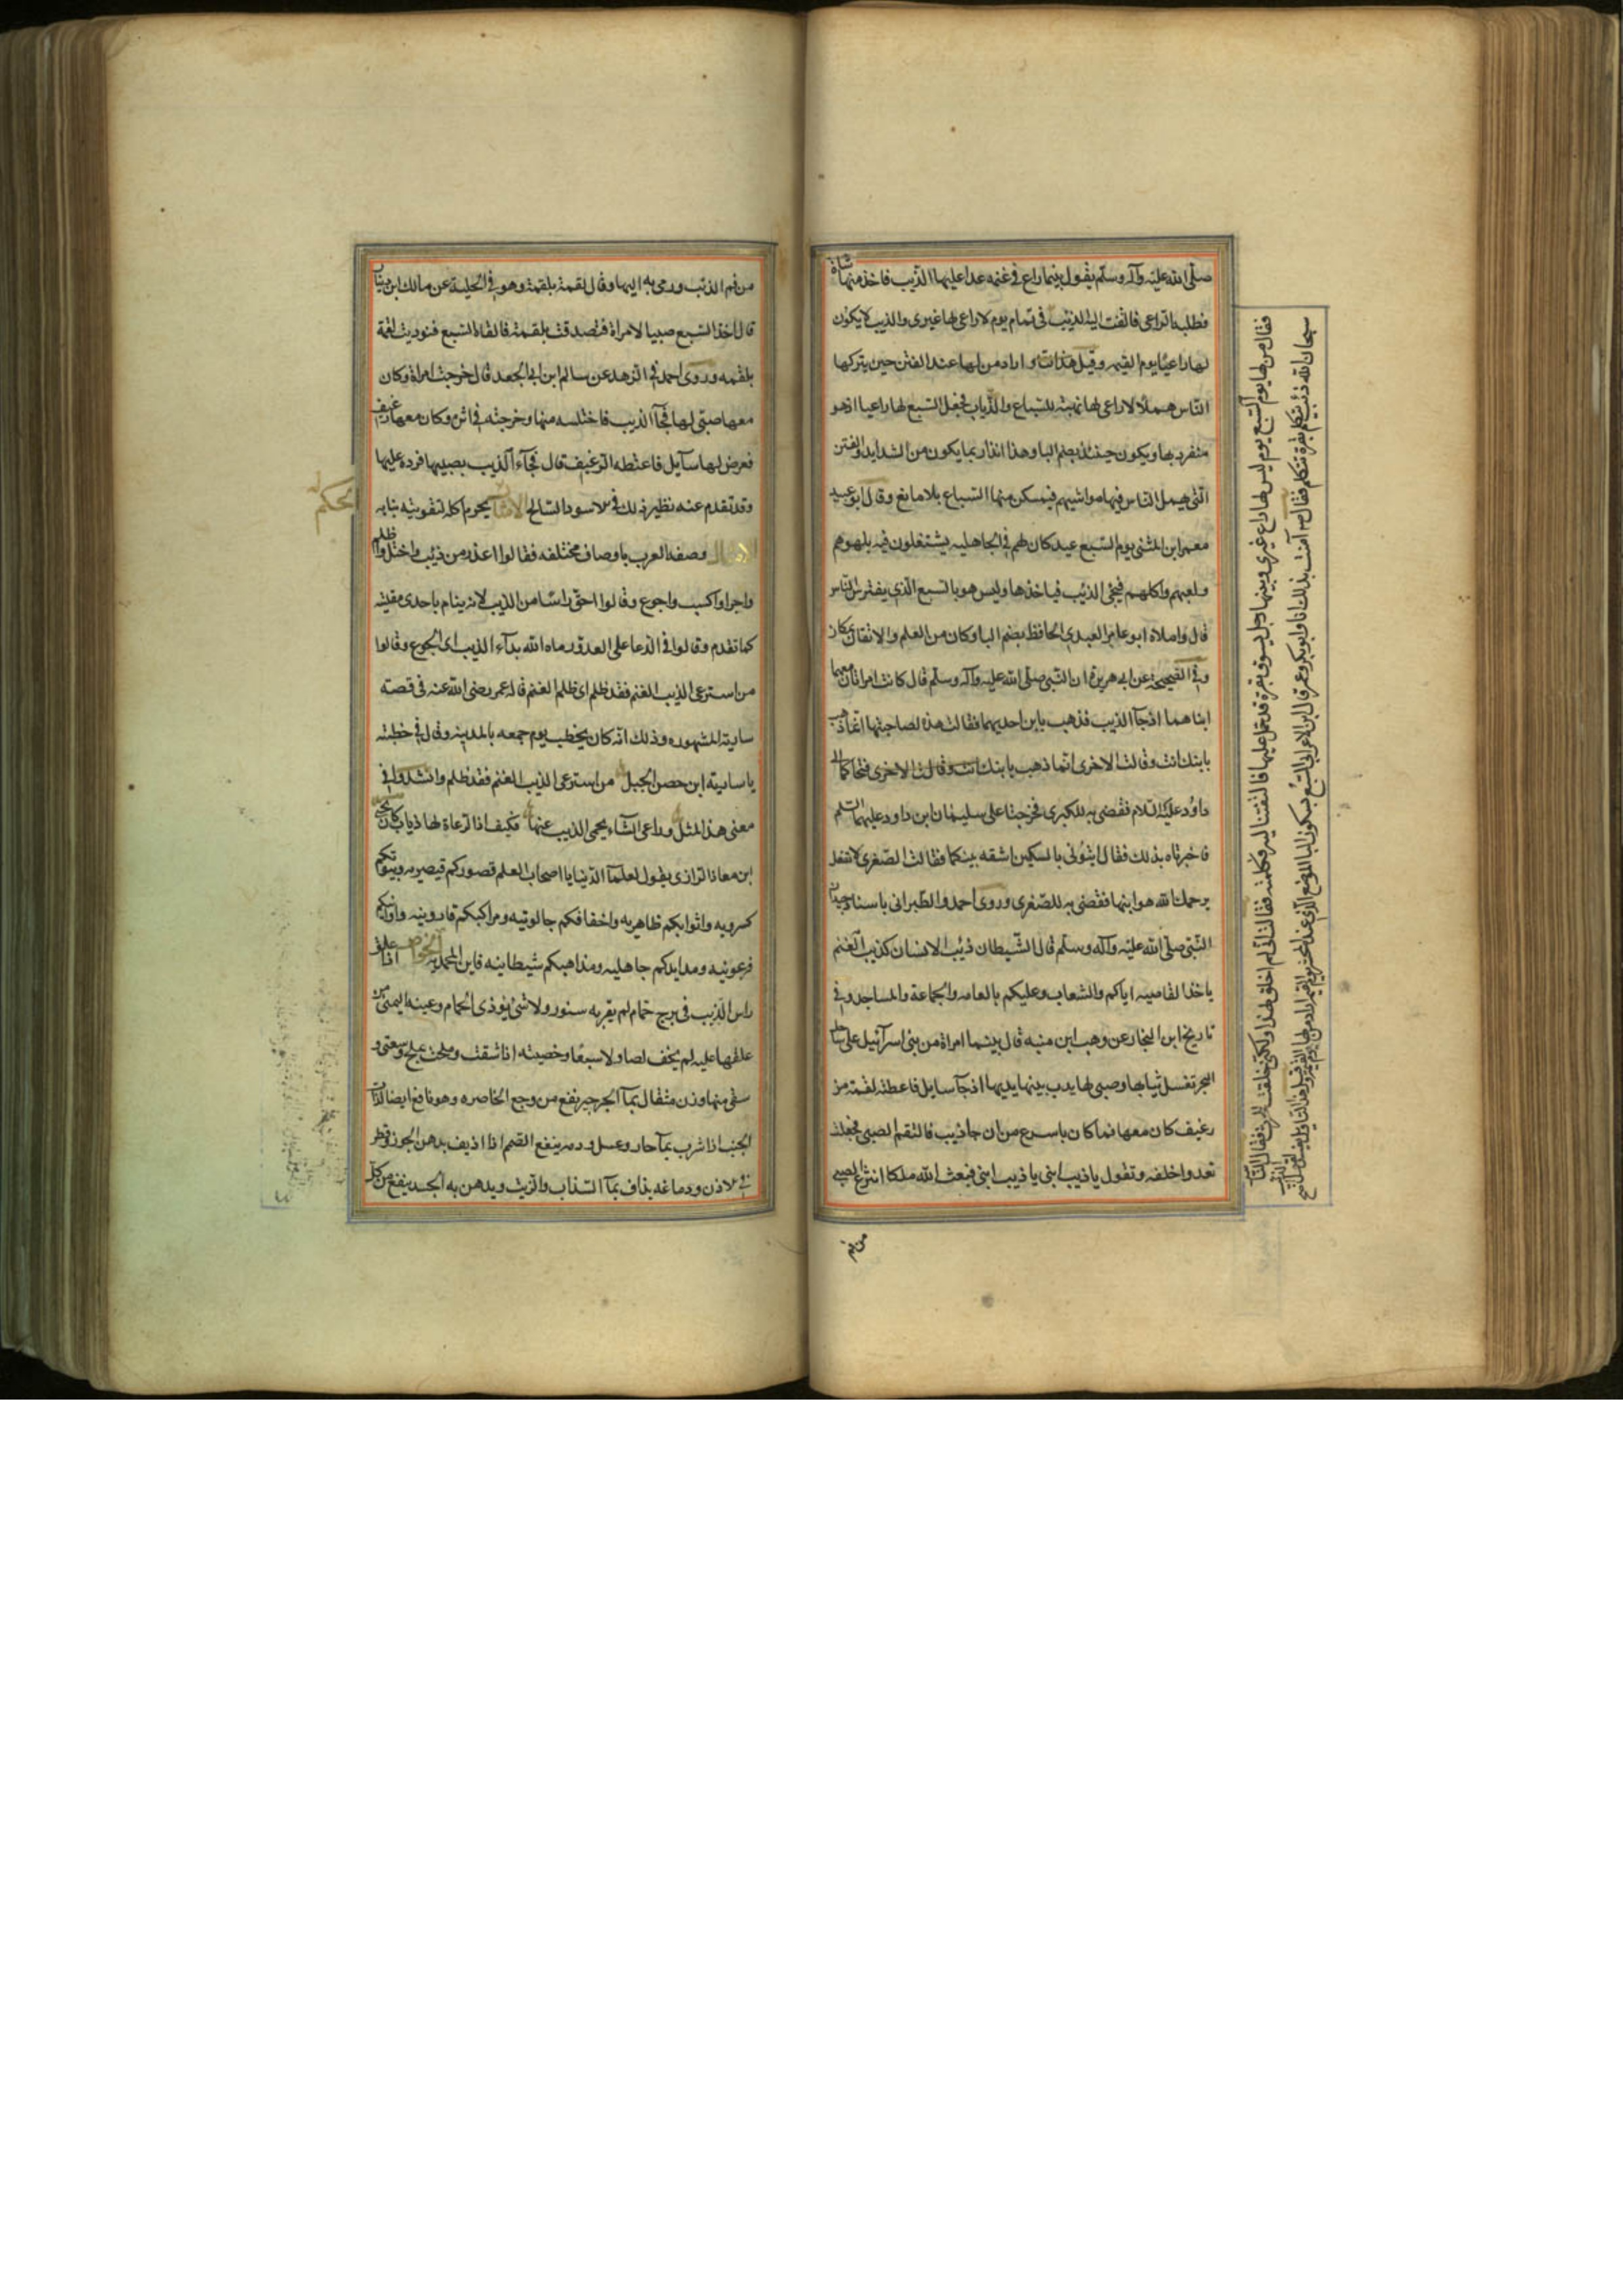 صلى الله عليه وآله وسلم يقول بينما راع في غنمه عدا عليها الذيب فاخذ منها شاة
فطلبه الراعي فالتفت اليه الذيب في تمام يوم لا راعي لها غيري والذيب لا يكون
لها راعيا يوم القيمه وقيل هذا التا و اراد من لها عند الفتن حين يتركها
الناس هملا لا راعي لها نهبة للسباع والذياب فجعل السبع لها راعيا اذ هو
منفرد بها ويكون حينئذ بضم البا وهذا انذار بما يكون من الشدايد والفتن
التي يهمل الناس فيها مواشيهم فيمكن منها السباع بلا مانع وقال ابو عبيد
معمر ابن المثنى يوم السبع عيد كان لهم في الجاهليه يشتغلون فيه بلهوهم
ولعبهم واكلهم فيجئ الذيب فياخذها وليس هو بالسبع الذي يفترس الناس
قال واملاه ابو عامر العبدي الحافظ بضم البا وكان من العلم والاتقان بمكان
وفي الصحيحة عن ابي هريرة ان النبي صلى الله عليه وآله وسلم قال كانت امراتان معهما
ابناهما اذ جآ الذيب فذهب بابن احديهما فقالت هذه لصاحبتها انما ذهب
بابنك انت وقالت الاخرى انما ذهب بابنك انت وقالت الاخرى فتحاكما الى
داؤد عليه السلام فقضى به للكبرى فخرجتا على سليمان ابن داود عليهما السلم
فاخبرتاه بذلك فقال ايتوني بالسكين اشقه بينكما فقالت الصغرى لا تفعل
يرحمك الله هو ابنها فقضى به للصغرى وروى احمد والطبراني باسناد جيد ان
النبي صلى الله عليه وآله وسلم قال الشيطان ذئب الانسان كذيب الغنم
ياخذ القاصيه اياكم والشعاب وعليكم بالعامه والجماعة والمساجد وفي
تاريخ ابن النجار عن وهب ابن منبه قال بينما امراة من بني اسرآئيل على ساحل
البحر تغسل ثيابها وصبي لها يدب بينها يديها اذ جآ سايل فاعطته لقمة من
رغيف كان معها فما كان باسرع من ان جا ذيب فالتقم الصبي فجعلت
تعدوا خلفه وتقول يا ذيب ابني يا ذيب ابني فبعث الله ملكا انتزع الصبي
من فم
فقال من لها يوم السبع يوم ليس لها راع غيري وبينما رجل يسوق بقرة قد حمل عليها فالتفتت اليه وكلمته فقالت اني لم اخلق لهذا ولكني خلقت للحرث فقال الناس
سبحان الله ذئب يتكلم بقرة تتكلم فقال آمنت بذلك انا وابو بكر وعمر قال ابن الاعرابي السبع بسكون البا الموضع الذي عنده المحشر يوم القيمه اراد من لها يوم القيمه
من فم الذئب ورمى به اليها وقال لقمة بلقمة وهو في الحلية عن مالك ابن دينار
قال اخذ السبع صبيا لامراة فتصدقت بلقمة فالقاه السبع فنوديت لقمة
بلقمه وروى احمد في الزهد عن سالم ابن ابي الجعد قال خرجت امراة وكان
معها صبي لها فجآ الذيب فاختلسه منها وخرجت في اثره وكان معها رغيف
فعرض لها سآيل فاعطته الرغيف قال فجآء الذيب بصبيها فرده عليها
وقد تقدم عنه نظير ذلك في الاسود السالخ يحرم اكله لتقويته بنابه
الحكم
الامثال وصفه العرب باوصاف مختلفه فقالوا اغدر من ذيب واختل واظلم
واجرا واكسب واجوع وقالوا احق راسا من الذيب لانه ينام باحدى مقلتيه
كما تقدم وقالوا في الدعا على العدو رماه الله بدآء الذيب اي الجوع وقالوا
من استرعى الذيب الغنم فقد ظلم اي ظلم الغنم قاله عمر رضي الله عنه في قصته
سارية المشهوره وذلك انه كان يخطب يوم جمعه بالمدينه وقال في خطبته
يا سارية ابن حصن الجبل من استرعى الذيب الغنم فقد ظلم وانشدوا في
معنى هذا المثل وراعي الشاء يحمي الذيب عنها فكيف اذا الرعاة لها ذياب كان يحيى
ابن معاذ الرازي يقول لعلمآ الدنيا يا اصحاب العلم قصوركم قيصريه وبيوتكم
كسرويه واثوابكم ظاهريه واخفافكم جالوتيه ومراكبكم قارونيه واوانيكم
فرعونيه وموايدكم جاهليه ومذاهبكم شيطانيه فاين المحمديه الخواص اذا علق
راس الذيب في برج حمام لم يقربه سنور ولا شئ يؤذي الحمام وعينه اليمنى من
علقها عليه لم يخف لصا ولا سبعا وخصيته اذا شقت وملحت بملح وسعتر و
سقي منها وزن مثقال بمآ الجرجير نفع من وجع الخاصره وهو نافع ايضا لذات
الجنب اذا شرب بمآ حار وعسل ودمه ينفع الصمم اذا اذيف بدهن الجوز وقطر
في الاذن ودماغه يذاف بمآ السذاب والزيت ويدهن به الجسد ينفع من كل